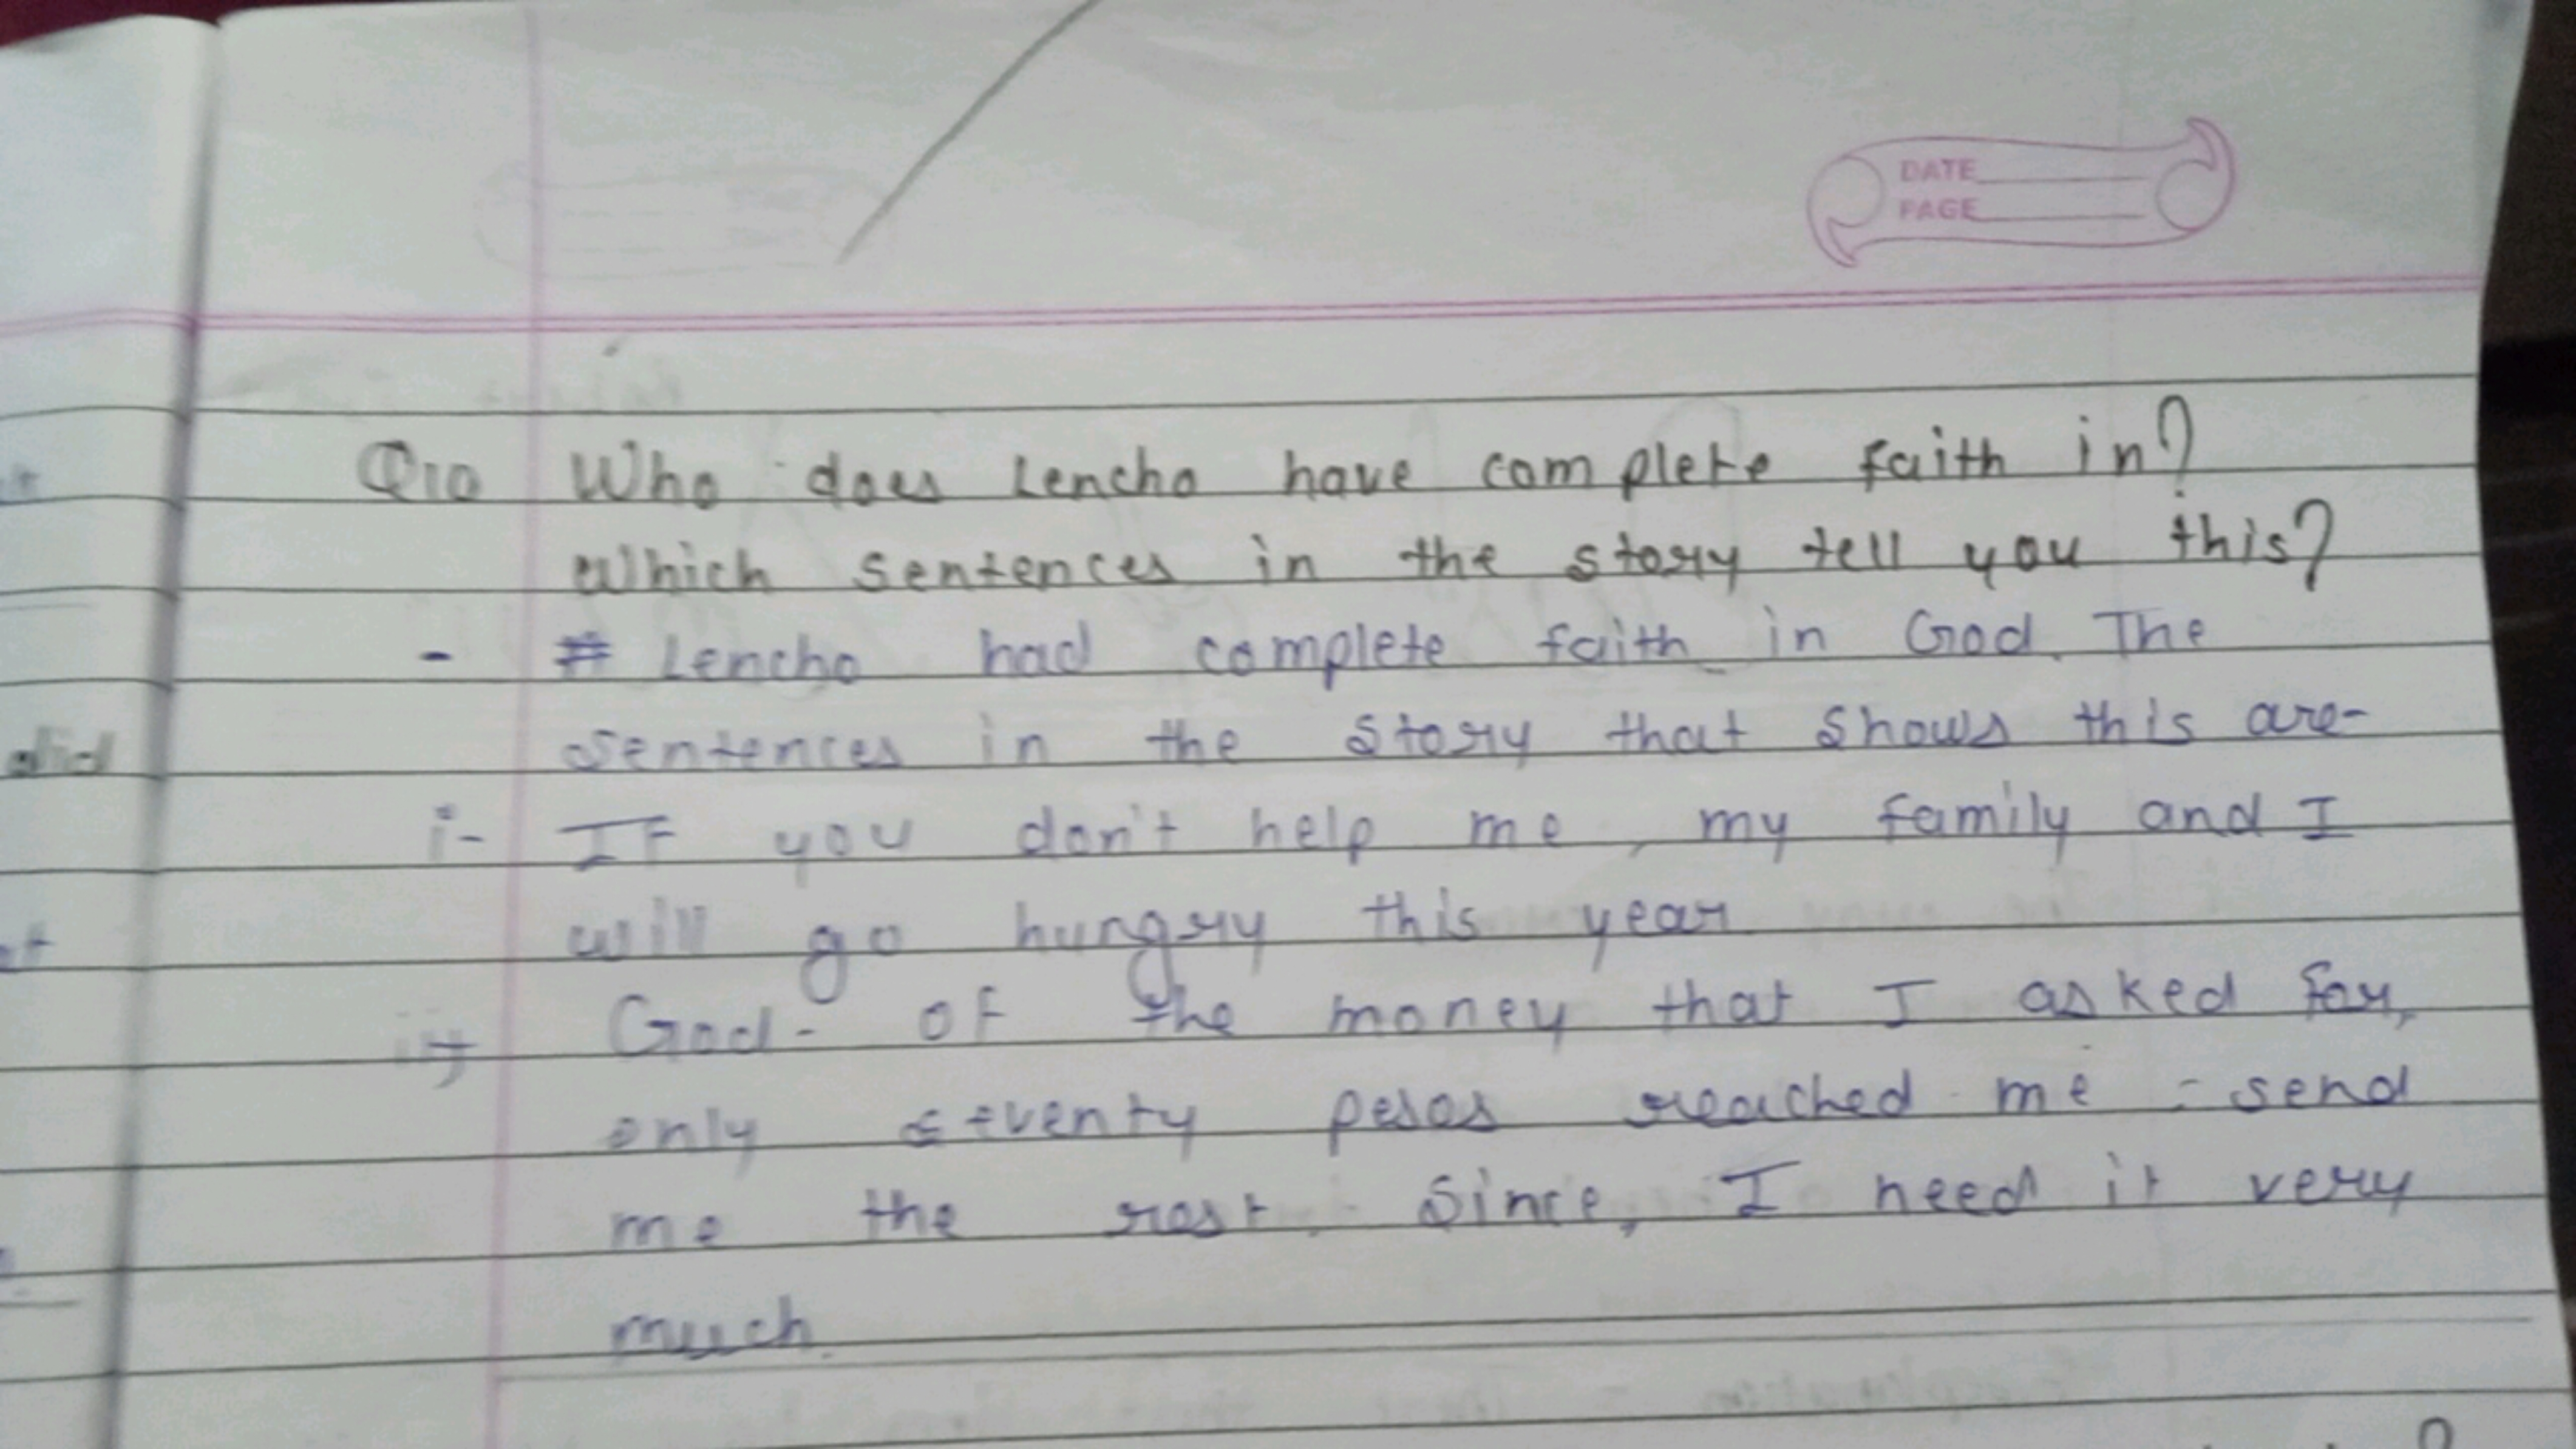 DATE
PAGE
Q10 Who does Lencho have complete faith in?
Which sentences in the story tell you this?
- # Lencho had complete faith in God. The
sentences in the story that shows this are-
did
i- If you don't help me, my family and I
will go hungry this year.
ii- God- of the money that I asked for,
only seventy pesos reached me - send
me the rest. Since, I need it very
much.